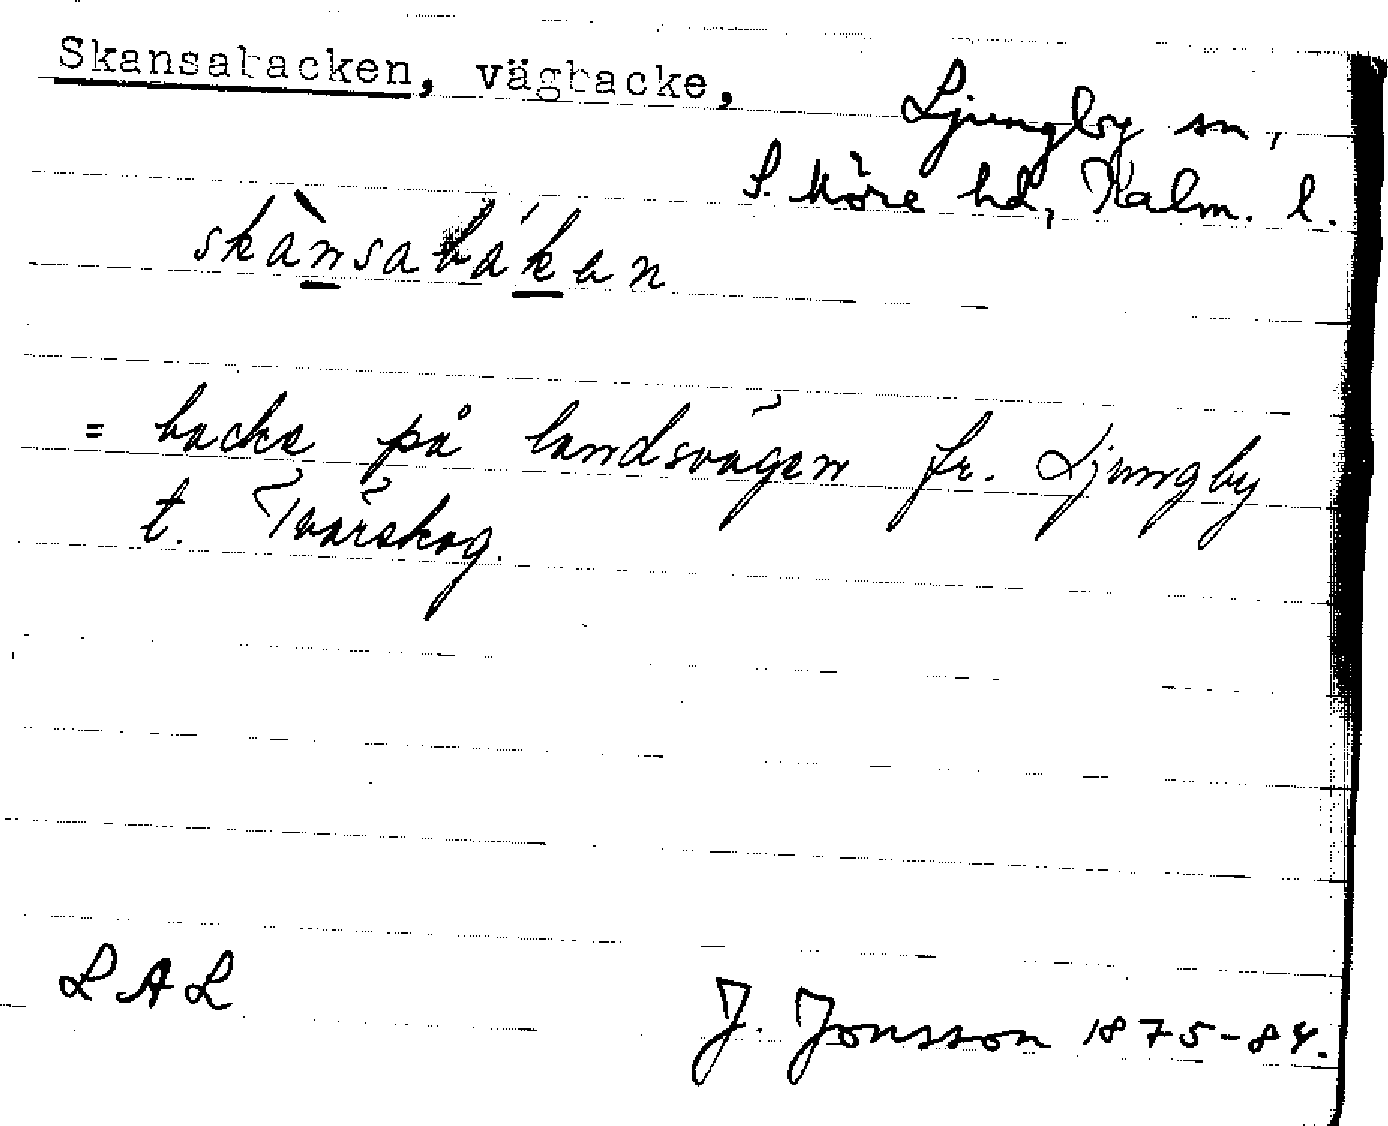 Skansabacken, vägbacke,
Ljungby sn,
S. Möre hd, Kalm. l.
skànsabáken
= backe på landsvägen fr. Ljungby
t. Tvärskog.
LAL
J. Jonsson 1875-84.